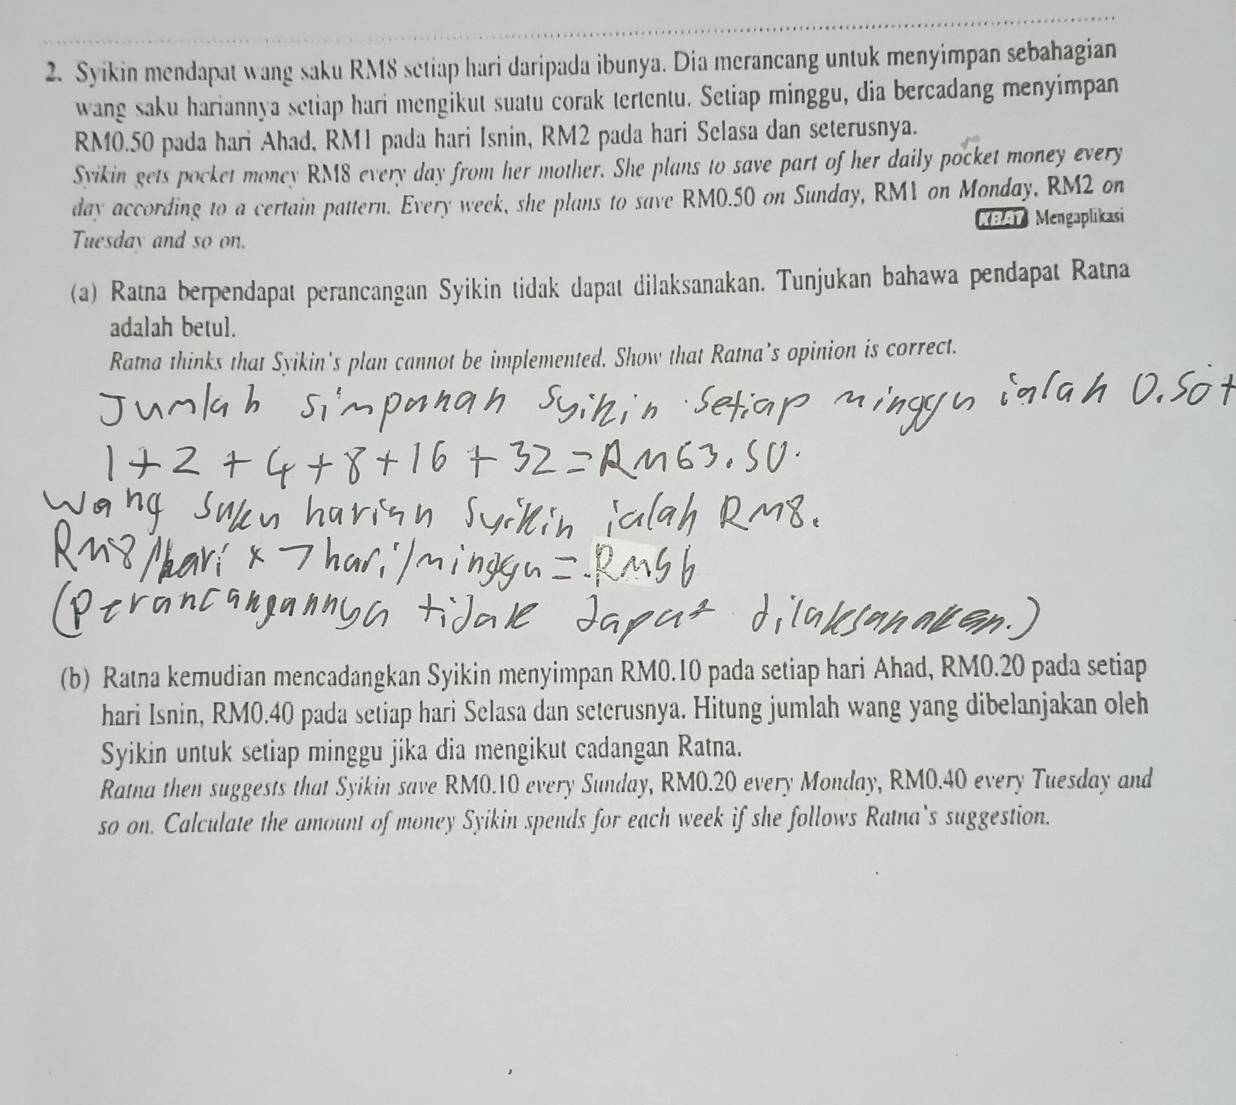 2. Syikin mendapat wang saku RM8 setiap hari daripada ibunya. Dia merancang untuk menyimpan sebahagian
wang saku hariannya setiap hari mengikut suatu corak tertentu. Setiap minggu, dia bercadang menyimpan
RM0.50 pada hari Ahad, RM1 pada hari Isnin, RM2 pada hari Selasa dan seterusnya.
Syikin gets pocket money RM8 every day from her mother. She plans to save part of her daily pocket money every
day according to a certain pattern. Every week, she plans to save RM0.50 on Sunday, RM1 on Monday, RM2 on
Tuesday and so on.
KBAT Mengaplikasi
(a) Ratna berpendapat perancangan Syikin tidak dapat dilaksanakan. Tunjukan bahawa pendapat Ratna
adalah betul.
Ratna thinks that Syikin's plan cannot be implemented. Show that Ratna's opinion is correct.
Jumlah simpanan Syikin setiap minggu ialah 0.50+
1+2+4+8+16+32=RM63.50.
Wang saku harian Syikin ialah RM8.
RM8/hari x 7 hari/minggu = RM56
(Perancangannya tidak dapat dilaksanakan.)
(b) Ratna kemudian mencadangkan Syikin menyimpan RM0.10 pada setiap hari Ahad, RM0.20 pada setiap
hari Isnin, RM0.40 pada setiap hari Selasa dan seterusnya. Hitung jumlah wang yang dibelanjakan oleh
Syikin untuk setiap minggu jika dia mengikut cadangan Ratna.
Ratna then suggests that Syikin save RM0.10 every Sunday, RM0.20 every Monday, RM0.40 every Tuesday and
so on. Calculate the amount of money Syikin spends for each week if she follows Ratna's suggestion.